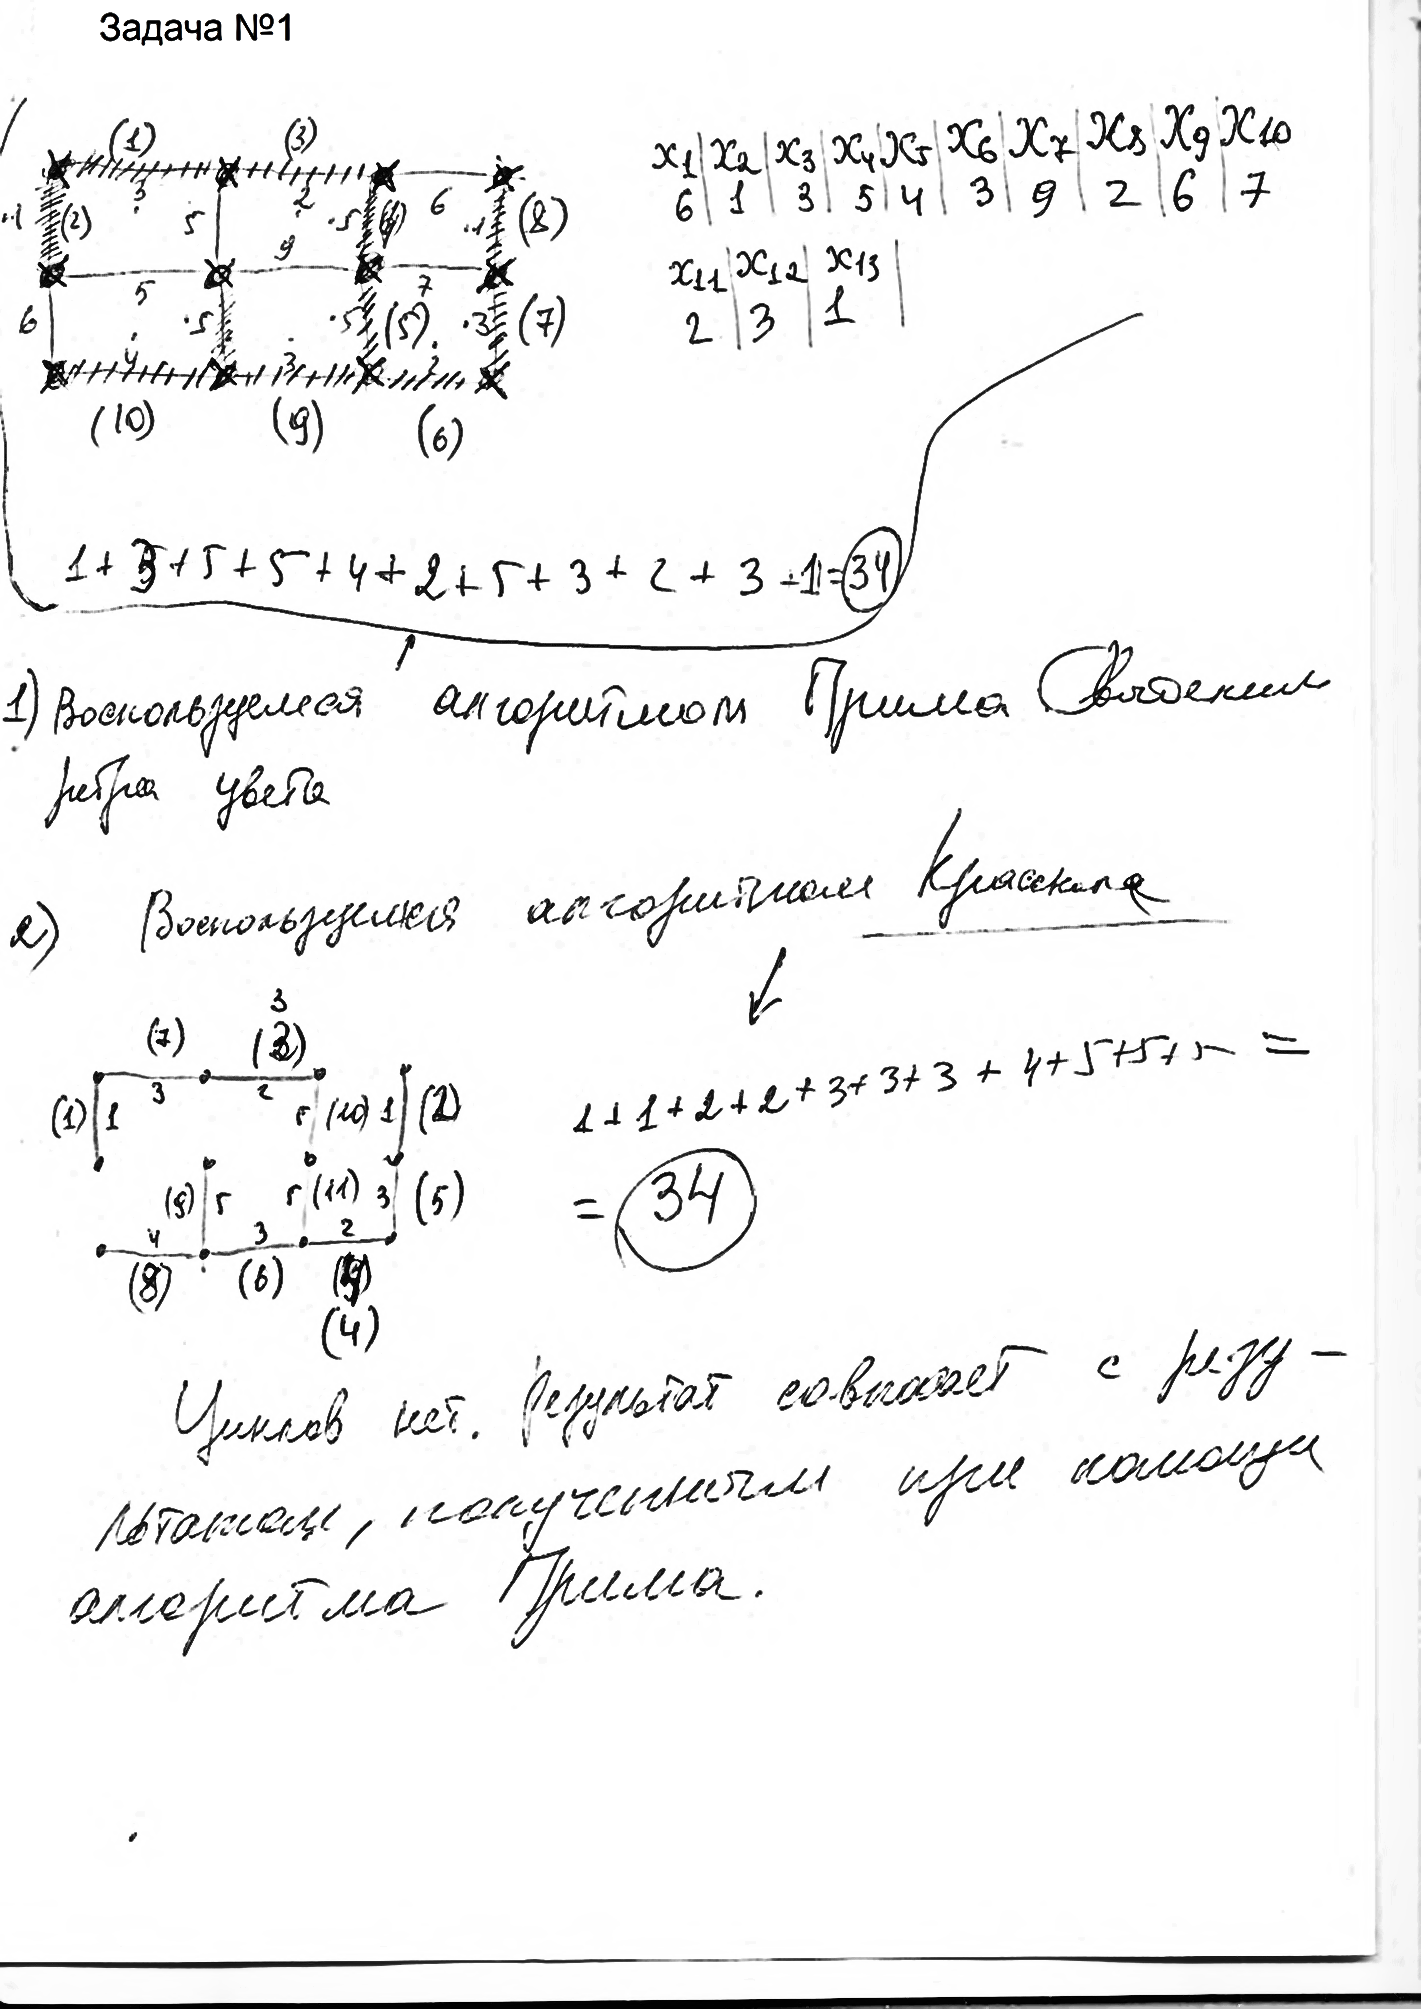 Задача №1
(1) (3)
3 2 6
.1 (2) 5 .5 (4) .1 (8)
9
5 7
6 .5 .5 (5) .3 (7)
4 3 2
(10) (9) (6)
x1 | x2 | x3 | x4 | x5 | x6 | x7 | x8 | x9 | x10
6 | 1 | 3 | 5 | 4 | 3 | 9 | 2 | 6 | 7
x11 | x12 | x13 |
2 | 3 | 1 |
1 + 3 + 5 + 5 + 4 + 2 + 5 + 3 + 2 + 3 + 1 = 34
1) Воспользуемся алгоритмом Прима
цвета
2) Воспользуемся алгоритмом Краскала
3
(7) (3)
3 2
(1) 1 5 (10) 1 (2)
(9) 5 5 (11) 3 (5)
4 3 2
(8) (6)
(4)
1 + 1 + 2 + 2 + 3 + 3 + 3 + 4 + 5 + 5 + 5 =
= 34
Циклов нет. Результат совпадает с резу-
льтатом, полученным при помощи
алгоритма Прима.